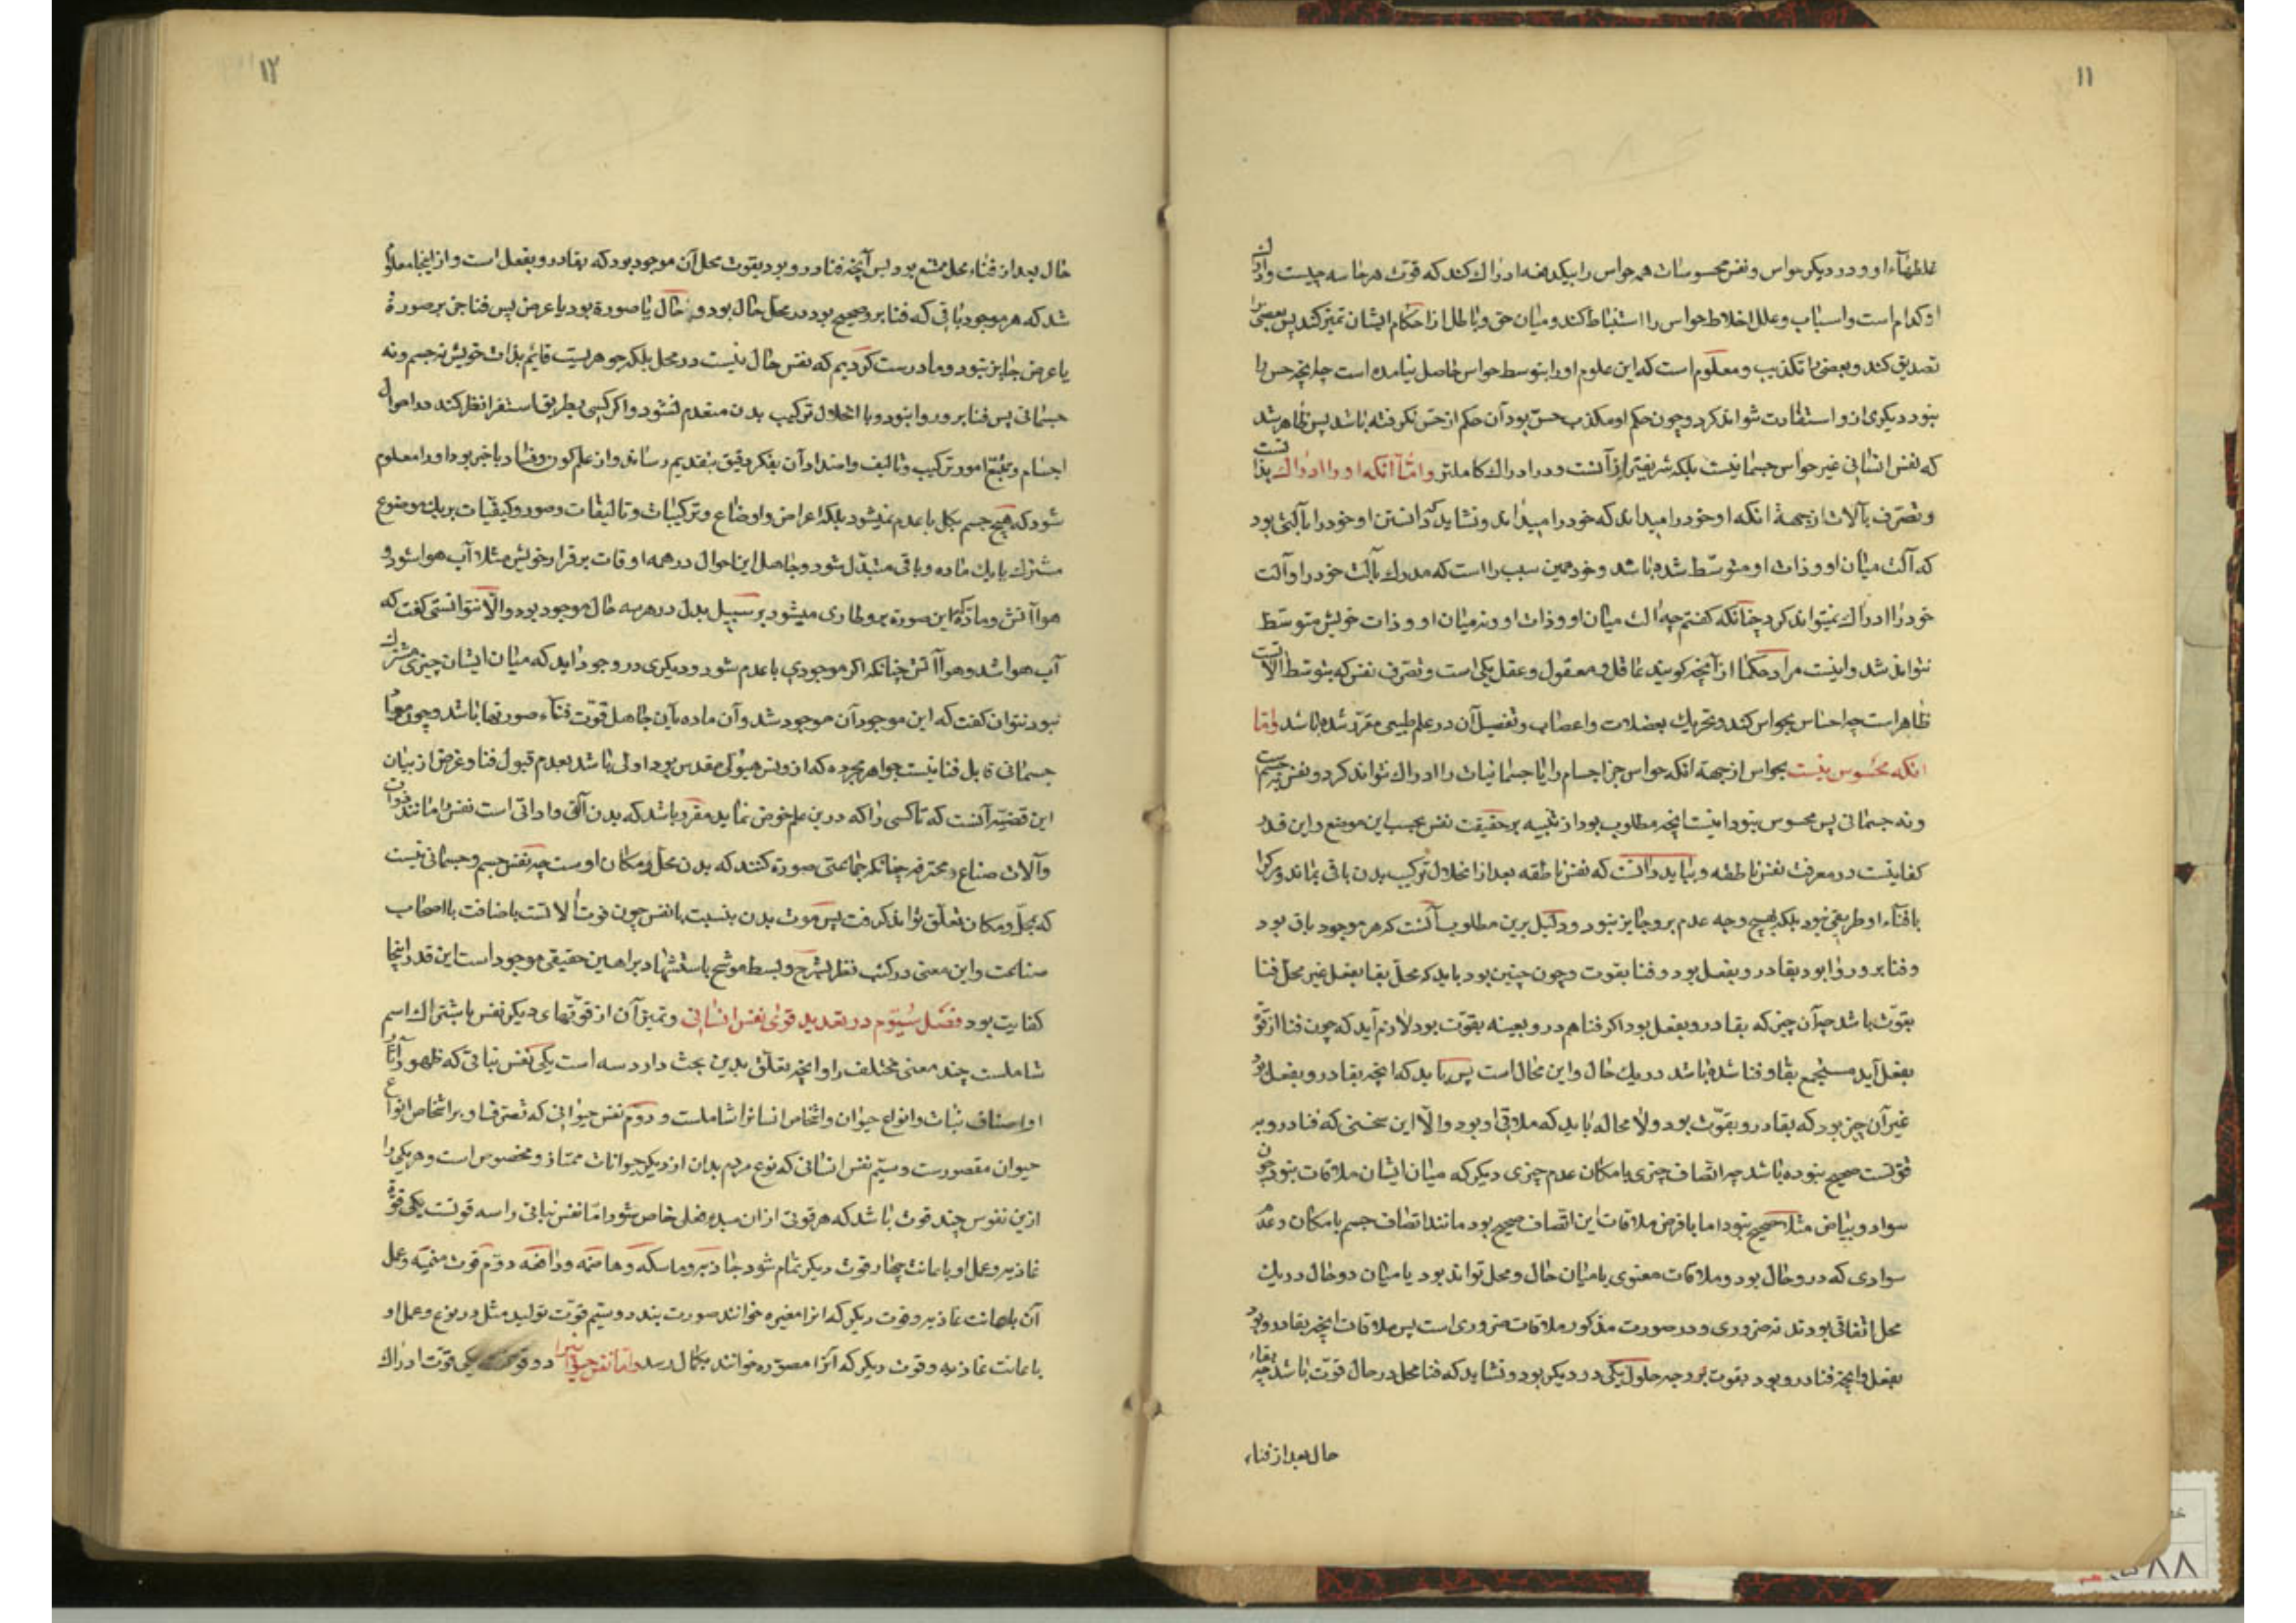 ۱۱
غلطهاء او و در دیکر حواس و نفس محسوسات همه حواس را بیکدفعه ادراک کند که قوت هر حاسه چیست و ادراک
او کدام است و اسباب و علل اغلاط حواس را استنباط کند و میان حق و باطل از احکام ایشان تمیز کند پس بعضی را
تصدیق کند و بعضی را تکذیب و معلوم است که این علوم او را بتوسط حواس حاصل نیامده است چه انچه حس را
نبود دیکری ازو استفادت نتواند کرد و چون حکم او مکذب حس بود آن حکم از حس نکرفته باشد پس ظاهر شد
که نفس انسانی غیر حواس جسمانیست بلکه شریفتر از آنست و در ادراک کاملتر و امّا آنکه او را ادراک بذاتست
و تصرّف بآلات از جهة انکه او خود را میداند که خود را میداند و نشاید که دانستن او خود را بآلتی بود
که آلت میان او و ذات او متوسّط شده باشد و خود همین سبب را است که مدرک بآلت خود را و آلت
خود را ادراک نمیتواند کرد چنانکه کفتم چه الت میان او و ذات او و نه میان او و ذات خویش متوسّط
نتواند شد و اینست مراد حکما از آنچه کویند عاقل و معقول و عقل یکی است و تصرّف نفس که بتوسّط الاتست
ظاهر است چه احساس بحواس کند و تحریک بعضلات و اعصاب و تفصیل آن در علم طبیعی مقرّر شده باشد و امّا
انکه محسوس نیست بحواس از جهة انکه حواس جز اجسام را یا جسمانیات را ادراک نتواند کرد و نفس نه جسمست
و نه جسمانی پس محسوس نبود اینست انچه مطلوب بود از تنبیه بر حقیقت نفس بحسب این موضع و این قدر
کفایتست در معرفت نفس ناطقه و بباید دانست که نفس ناطقه بعد از انحلال ترکیب بدن باقی بماند و مرک را
با فناء او طریقی نبود بلکه بهیچ وجه عدم برو جایز نبود و دلیل برین مطلوب آنست که هر موجود باقی بود
و فنا برو روا بود بقا درو بفعل بود و فنا بقوت و چون چنین بود باید که محلّ بقا بفعل غیر محلّ فنا
بقوّت باشد چه آن چیز که بقا درو بفعل بود اکر فنا هم درو بعینه بقوّت بود لازم آید که چون فنا از قوّة
بفعل آید مستجمع بقا و فنا شده باشد در یک حال و این محال است پس باید که انچه بقا درو بفعل بود
غیر آن چیز بود که بقا درو بقوّت بود و لا محاله باید که ملاقی او بود و الّا این سخن که فنا درو به
قوتست صحیح نبوده باشد چه اتصاف چیزی بامکان عدم چیزی دیکر که میان ایشان ملاقات نبود چون
سواد و بیاض مثلا صحیح نبود اما با فرض ملاقات این اتصاف صحیح بود مانند اتصاف جسم بامکان عدم
سوادی که درو حال بود و ملاقات معنوی یا میان حال و محل تواند بود یا میان دو حال در یک
محل اتفاقی بود نه ضروری و در صورت مذکور ملاقات ضروری است پس ملاقات انچه بقا درو بود
بفعل و انچه فنا درو بود بقوت بر وجه حلول یکی در دیکر بود و نشاید که فنا محل در حال قوّت باشد چه بقاء
حال بعد از فناء
۱۲
حال بعد از فناء محل ممتنع بود پس آنچه فنا درو بود بقوت محل آن موجود بود که بقا درو بفعل است و از اینجا معلوم
شد که هر موجود باقی که فنا برو صحیح بود در محل حال بود و حال یا صورة بود یا عرض پس فنا جز بر صورة
یا عرض جایز نبود و ما درست کردیم که نفس حال نیست در محل بلکه جوهریست قائم بذات خویش نه جسم و نه
جسمانی پس فنا برو روا نبود و با انحلال ترکیب بدن منعدم نشود و اکر کسی بطریق استقرا نظر کند در احوال
اجسام و تتبّع امور ترکیب و تالیف و امتداد آن بفکر دقیق بتقدیم رساند و از علم کون و فساد باخبر بود او را معلوم
شود که هیچ جسم بکل با عدم نمیشود بلکه اعراض و اوضاع و ترکیبات و تالیفات و صور و کیفیات بر یک موضوع
مشترک یا یک ماده و باقی متبدّل شود و حامل این احوال در همه اوقات برقرار خویش مثلا آب هوا شود و
هوا آتش و مادّه که این صورة برو طاری میشود بر سبیل بدل در هر سه حال موجود بود و الّا نتوانستی کفت که
آب هوا شد و هوا آتش چنانکه اکر موجودی با عدم شود و دیکری در وجود آید که میان ایشان چیزی مشترک
نبود نتوان کفت که این موجود آن موجود شد و آن ماده باین حامل قوّت فناء صورتها باشد و چون مواد
جسمانی قابل فنا نیست جواهر مجرده که از دنس هیولی مقدس بود اولی باشد بعدم قبول فنا و غرض از بیان
این قضیّه آنست که تا کسی را که درین علم خوض نماید مقرّر باشد که بدن آلتی و اداتی است نفس را مانند ادوات
و آلات صناع و محترفه چنانکه جماعتی صورة کنند که بدن محلّ و مکان اوست چه نفس جسم و جسمانی نیست
که بمحلّ و مکان تعلّق تواند کرفت پس موت بدن بنسبت با نفس چون فوت الاتست باضافت با اصحاب
صناعت و این معنی در کتب نظر بشرح و بسط موشّح باستشهاد براهین حقیقی موجود است این قدر اینجا
کفایت بود فصل سیّوم در تعدید قوی نفس انسانی و تمییز آن از قوّتهای دیکر نفس باشتراک اسم
شاملست چند معنی مختلف را و انچه تعلّق بدین بحث دارد سه است یکی نفس نباتی که ظهور آثار
او اصناف نبات و انواع حیوان و اشخاص انسانرا شاملست و دوم نفس حیوانی که تصرّف او بر اشخاص انواع
حیوان مقصورست و سیّم نفس انسانی که نوع مردم بدان از دیکر حیوانات ممتاز و مخصوص است و هر یکی را
ازین نفوس چند قوت باشد که هر قوتی از ان مبدء فعلی خاص شود امّا نفس نباتی را سه قوتست یکی قوّة
غاذیه و عمل او باعانت چهار قوت دیکر تمام شود جاذبه و ماسکه و هاضمه و دافعه دوّم قوت منمیّه و عمل
آن باعانت غاذیه و قوت دیکر که انرا مغیره خوانند صورت بندد و سیّم قوّت تولید مثل در نوع و عمل او
باعانت غاذیه و قوت دیکر که آنرا مصوّره خوانند بکمال رسد و امّا نفس حیوانیرا دو قوتست یکی قوّت ادراک